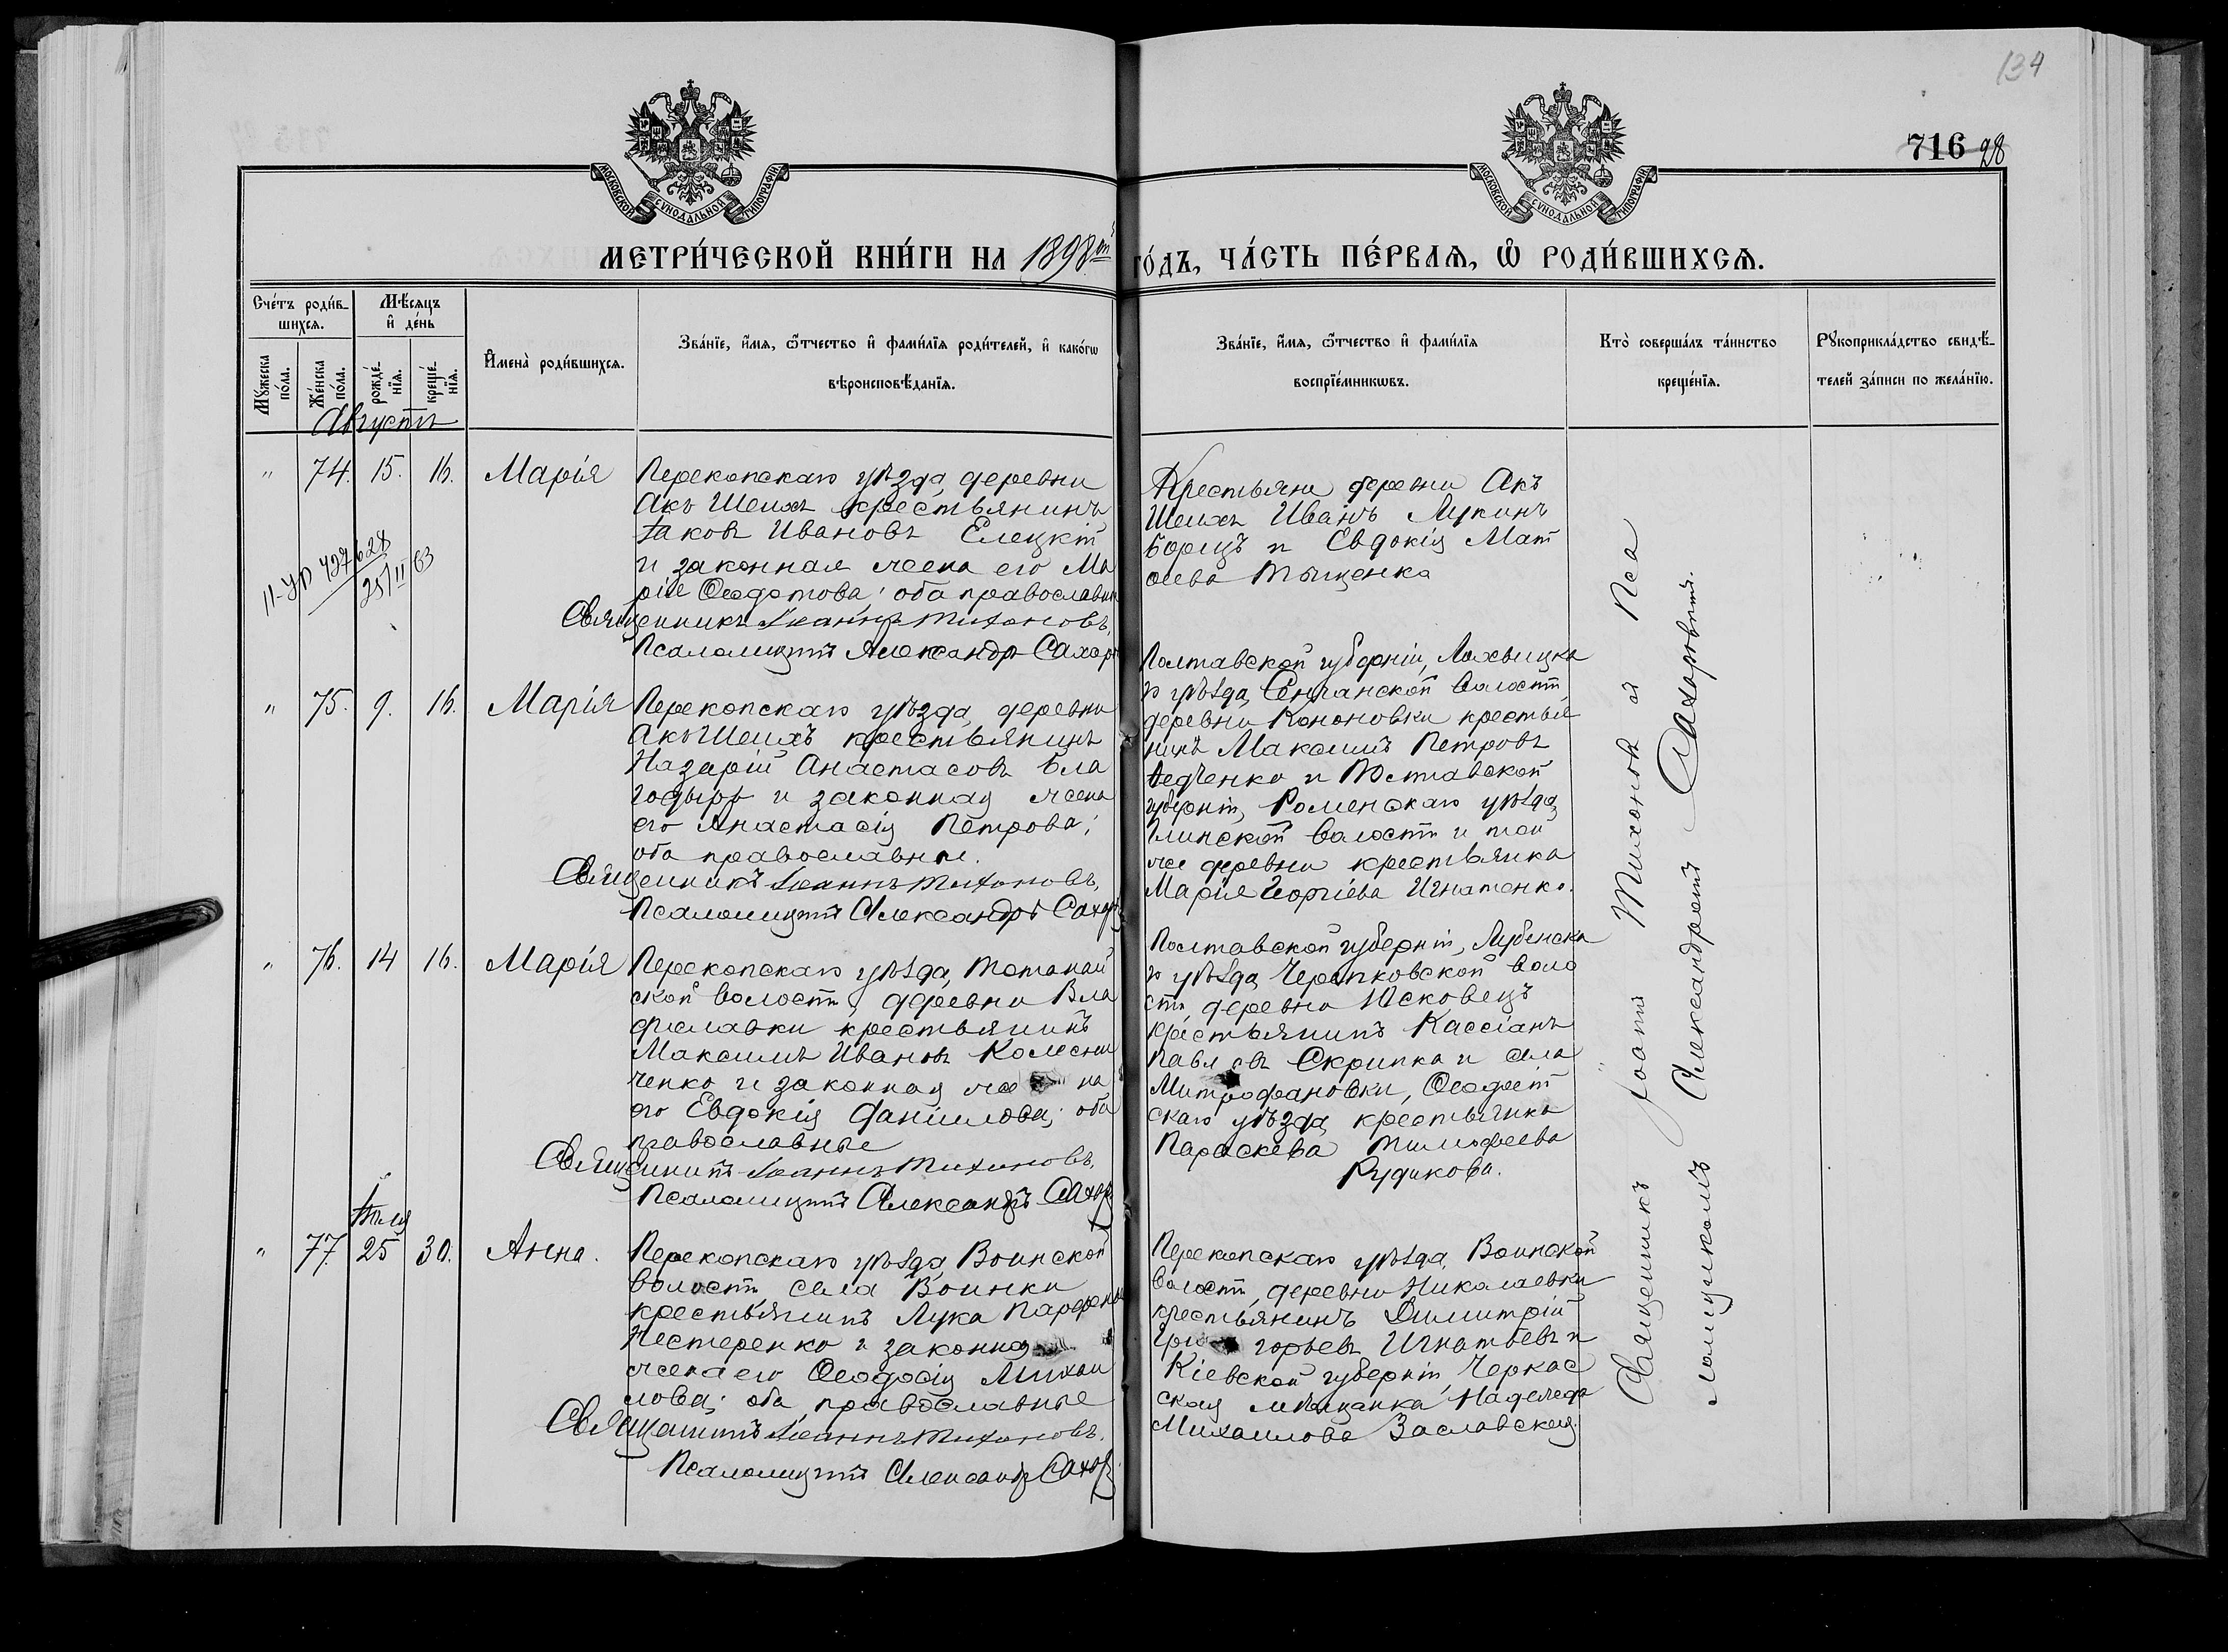 134
716 28
МОСКОВСКОЙ СѴНОДАЛЬНОЙ ТИПОГРАФІИ
МОСКОВСКОЙ СѴНОДАЛЬНОЙ ТИПОГРАФІИ
МЕТРИ́ЧЕСКОЙ КНИ́ГИ НА 1898й ГО́ДЪ, ЧА́СТЬ ПЕ́РВАѦ, Ѽ РОДИ́ВШИХСѦ.
Сче́тъ роди́в-
шихсѧ.
Мꙋ́жеска
по́ла.
Же́нска
по́ла.
Мѣ́сѧцъ
и҆ де́нь
рожде́-
нїѧ.
креще́-
нїѧ.
И҆мена̀ роди́вшихсѧ.
Зва́нїе, и҆́мѧ, ѻ҆́тчество и҆ фами́лїѧ роди́телей, и҆ како́гѡ
вѣроисповѣ́данїѧ.
Зва́нїе, и҆́мѧ, ѻ҆́тчество и҆ фами́лїѧ
воспрїе́мникѡвъ.
Кто̀ соверша́лъ та́инство
креще́нїѧ.
Рꙋкоприкла́дство свидѣ́-
телей за́писи по жела́нїю.
Августъ
" 74. 15. 16. Марія
Перекопскаго уѣзда, деревни
Акъ Шеихъ крестьянинъ
Іаковъ Ивановъ Елецкій
и законная жена его Ма
рія Ѳеодотова; оба православн
Священникъ Іоаннъ Тихоновъ,
Псаломщикъ Александръ Сахар
Крестьяне деревни Акъ
Шеихъ Иванъ Лукинъ
Борецъ и Евдокія Мат
ѳеева Тыщенко
II-УР 427628
25/II 63
" 75. 9. 16. Марія
Перекопскаго уѣзда, деревни
Акъ Шеихъ крестьянинъ
Назарій Анастасовъ Бла
годыръ и законная жена
его Анастасія Петрова;
оба православные.
Священникъ Іоаннъ Тихоновъ,
Псаломщикъ Александръ Сахар
Полтавской губерніи, Лохвицка
го уѣзда, Сенчанской волости,
деревни Кононовки крестья
нинъ Максимъ Петровъ
Ѳедченко и Полтавской
губерніи, Роменскаго уѣзда,
Глинской волости и той
же деревни крестьянка
Марія Георгіева Игнатенко.
" 76. 14 16. Марія
Перекопскаго уѣзда, Тотанай
ской волости, деревни Вла
диславки крестьянинъ
Максимъ Ивановъ Колесни
ченко и законная же на
его Евдокія Даніилова; оба
православные
Священникъ Іоаннъ Тихоновъ,
Псаломщикъ Александръ Сахар
Полтавской губерніи, Лубенска
го уѣзда, Черевковской воло
сти, деревни Исковецъ
крестьянинъ Кассіанъ
Павловъ Скрипка и села
Митрофановки, Ѳеодосій
скаго уѣзда, крестьянка
Параскева Тимоѳеева
Рудикова.
Іюля
" 77. 25 30. Анна.
Перекопскаго уѣзда, Воинской
волости, села Воинки
крестьянинъ Лука Парфенов
Нестеренко и законная
жена его Ѳеодосія Михаи
лова; оба православные
Священникъ Іоаннъ Тихоновъ,
Псаломщикъ Александръ Сахар
Перекопскаго уѣзда, Воинской
волости, деревни Николаевки
крестьянинъ Димитрій
Гри горьевъ Игнатьевъ и
Кіевской губерніи, Черкас
ская мѣщанка Надежда
Михаилова Заславская.
Священникъ Іоаннъ Тихоновъ съ Пса
ломщикомъ Александромъ Сахаровымъ.